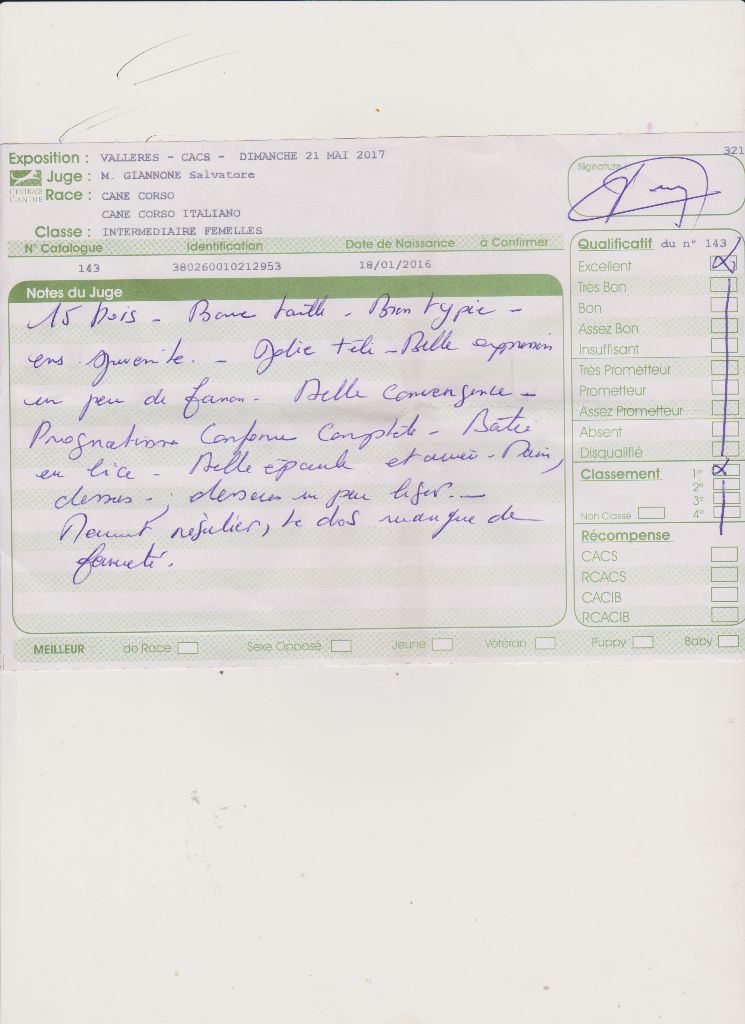 321
Exposition : VALLERES - CACS - DIMANCHE 21 MAI 2017
Signature :
Juge : M. GIANNONE Salvatore
CENTRALE CANINE
Race : CANE CORSO
CANE CORSO ITALIANO
Classe : INTERMEDIAIRE FEMELLES
N° Catalogue Identification Date de Naissance à Confirmer
143 380260010212953 18/01/2016
Notes du Juge
15 Mois - Bonne taille - Bien typée -
Jolie tête - Belle expression
un peu de fanon - Belle Convergence -
Prognatisme Conforme Complète - Batie
en lice - Belle épaule et
dessus - , dessous un peu léger. -
régulier, le dos manque de
fermeté.
Qualificatif du n° 143
Excellent X
Très Bon
Bon
Assez Bon
Insuffisant
Très Prometteur
Prometteur
Assez Prometteur
Absent
Disqualifié
Classement 1er X
2e
3e
Non Classé 4e
Récompense
CACS
RCACS
CACIB
RCACIB
MEILLEUR : de Race Sexe Opposé Jeune Vétéran Puppy Baby